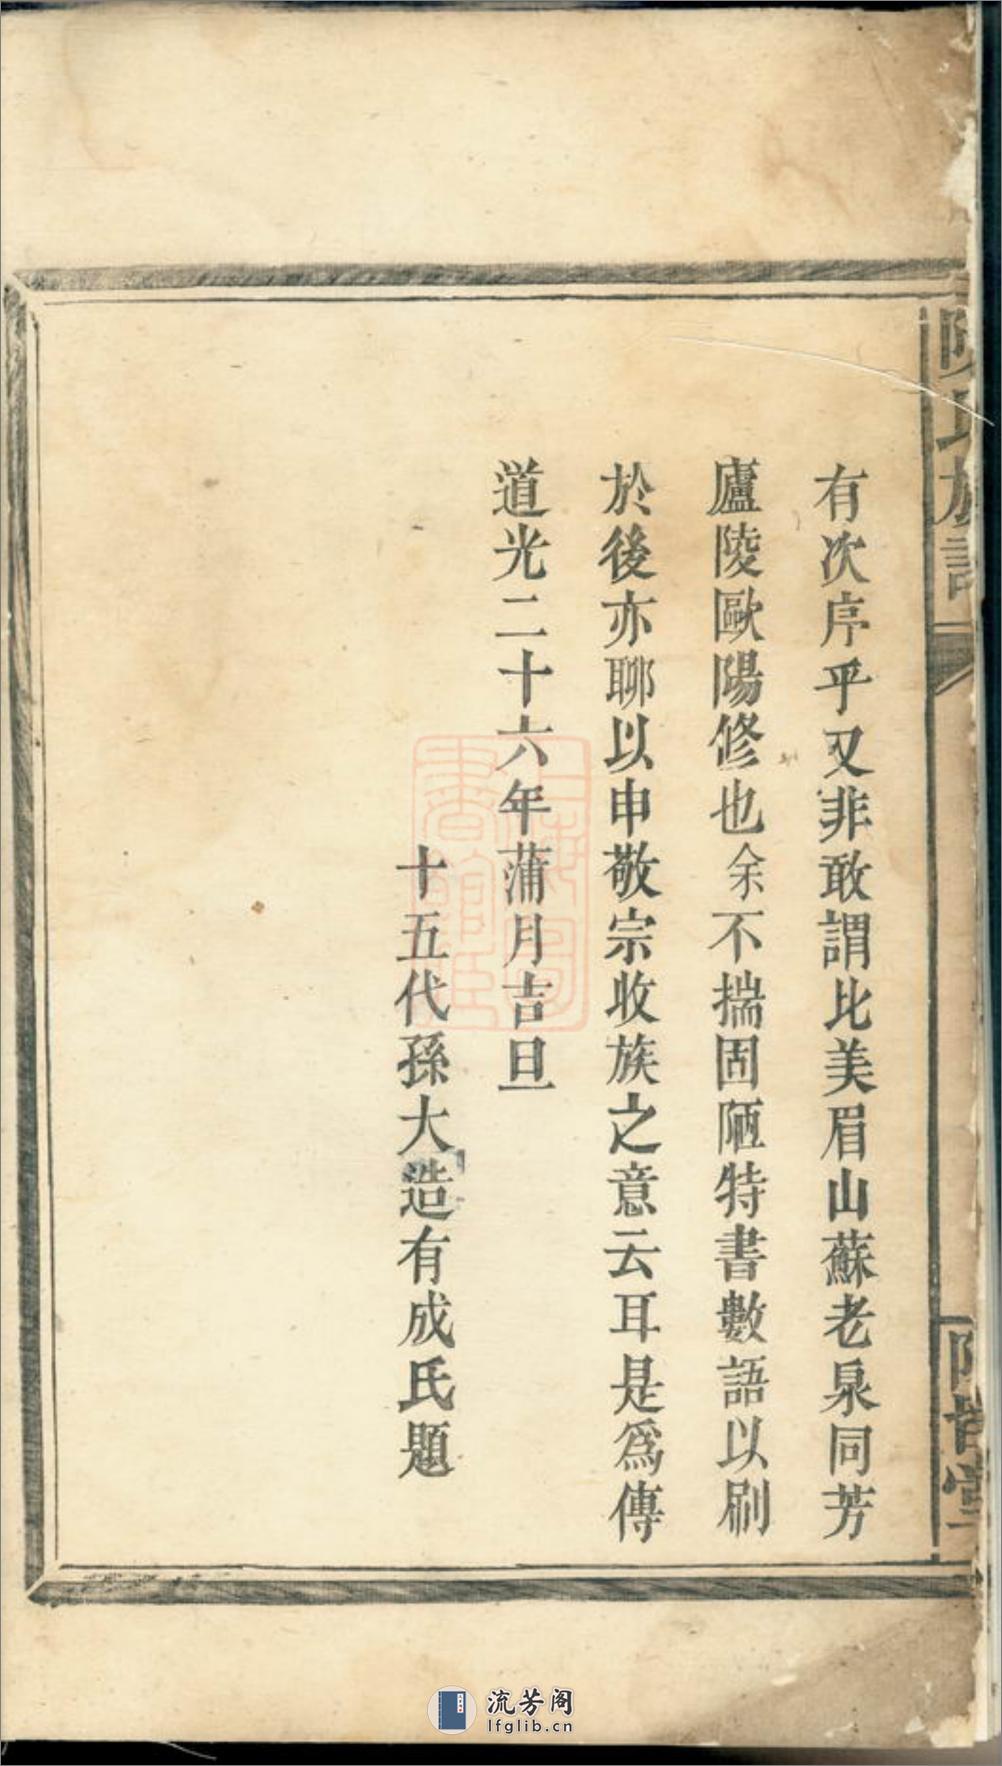 有次序乎又非敢謂比美眉山蘇老泉同芳
廬陵歐陽修也余不揣固陋特書數語以刷
於後亦聊以申敬宗收族之意云耳是爲傳
道光二十六年蒲月吉旦
十五代孫大造有成氏題
流芳阁
lfglib.cn